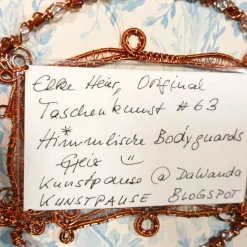 Elke Heinz, Original
Taschenkunst #63
Himmlische Bodyguards
Kunstpause @ DaWanda
KUNSTPAUSE BLOGSPOT